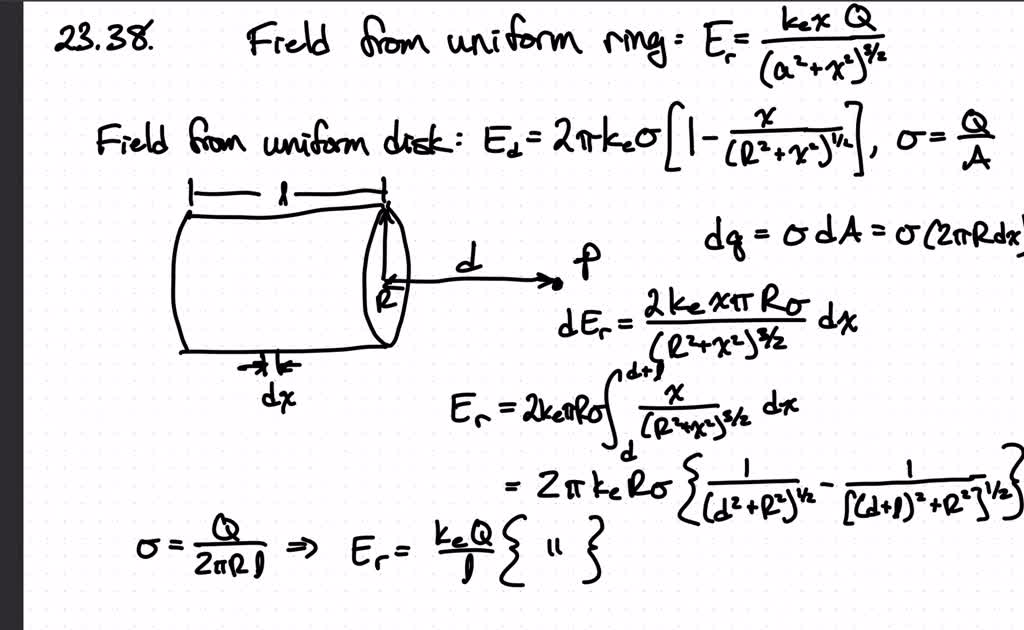 23.38. Field from uniform ring: E_r = k_e x Q / (a² + x²)^{3/2}
Field from uniform disk: E_d = 2πk_eσ[1 - x / (R² + x²)^{1/2}], σ = Q / A
l
dq = σ dA = σ(2πR dx)
d
P
R
dE_r = 2k_e xπ Rσ / (R² + x²)^{3/2} dx
dx
E_r = 2k_eπRσ ∫_d^{d+l} x / (R² + x²)^{3/2} dx
= 2πk_e Rσ { 1 / (d² + R²)^{1/2} - 1 / [(d+l)² + R²]^{1/2} }
σ = Q / 2πRl ⇒ E_r = k_e Q / l { " }